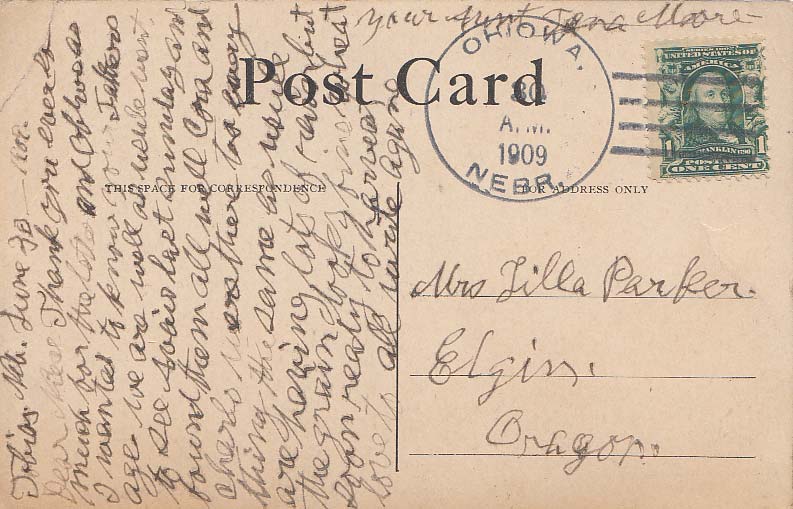 your Aunt Moore
Post Card
THIS SPACE FOR CORRESPONDENCE
FOR ADDRESS ONLY
OHIOWA,
30
A.M.
1909
NEBR.
SERIES 1902
UNITED STATES OF
AMERICA
1 FRANKLIN 1790 1
POSTAGE
ONE CENT
Mrs Lilla Parker.
Elgin.
Oragon.
Tobias. Neb. June 30 - 
Dear Niece Thank you ever so
much for the letter and Ob was
I wanted to know your Fathers
age we are well as usule went
to see last sunday and
found them all well Cora and
Charls was there to every
thing the same as usule
are having lots of rain but
the grain looks fine wheat
soon ready to harvest
love to all write agane